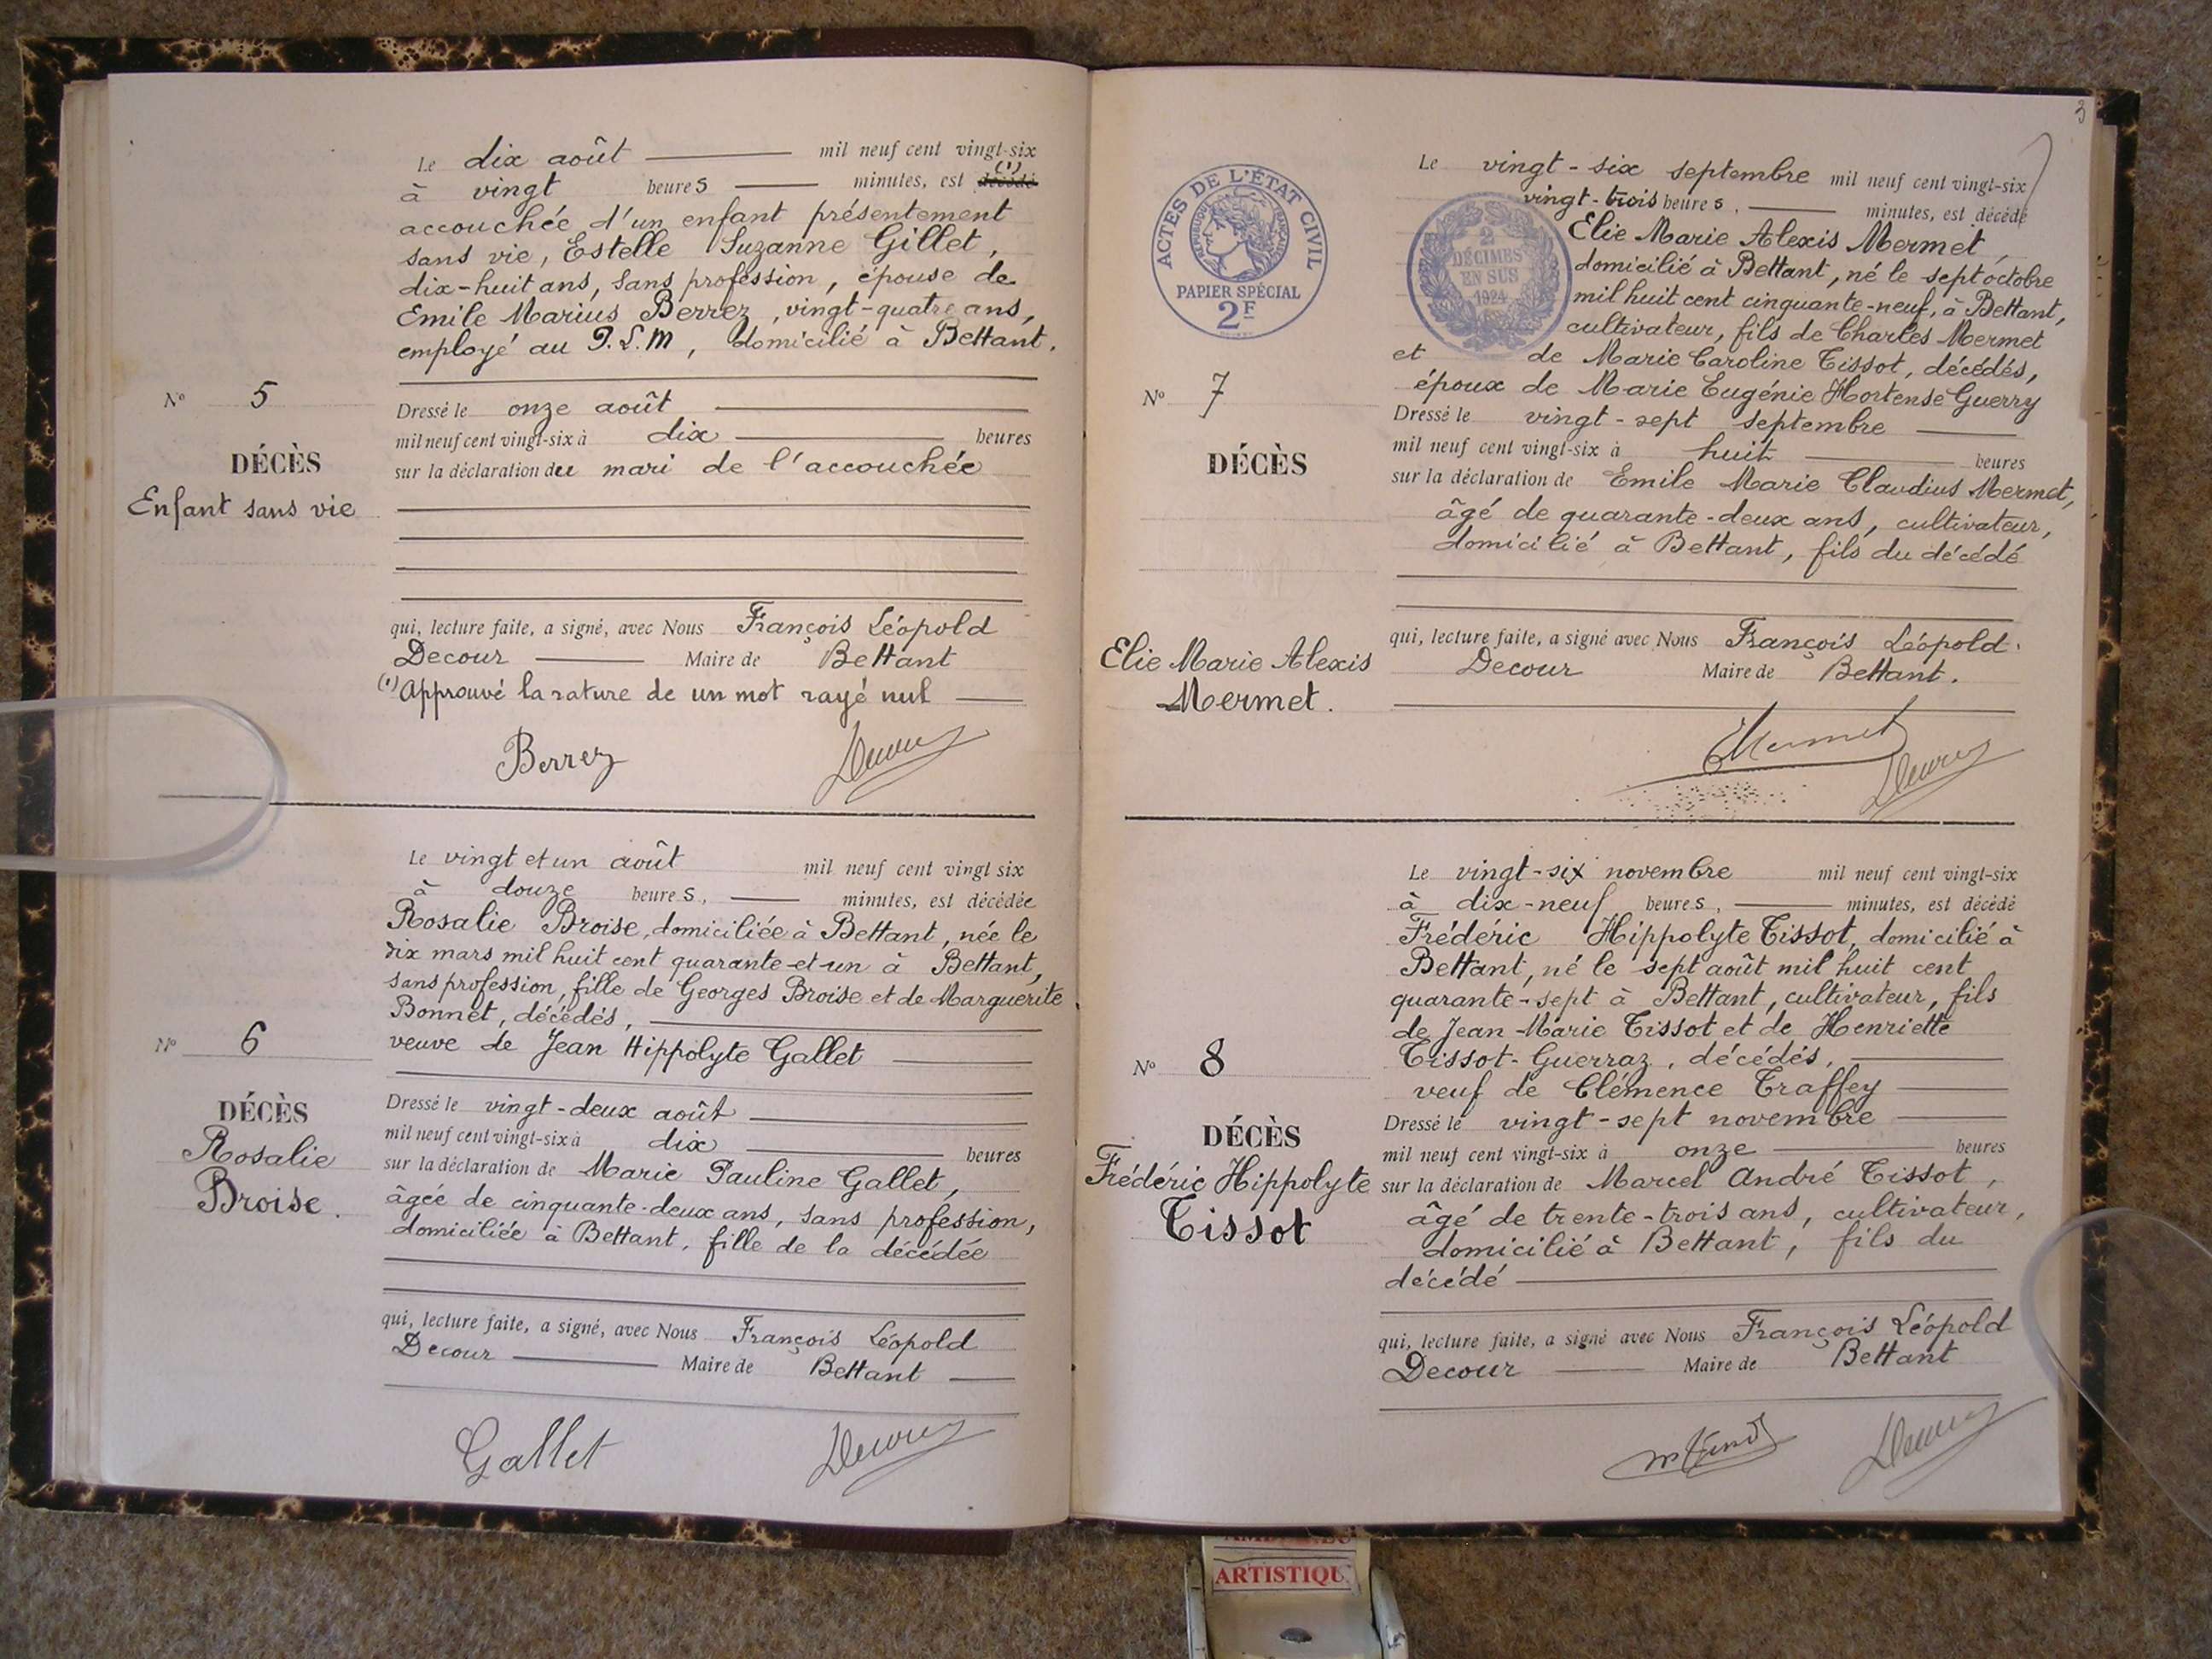 Le dix août mil neuf cent vingt-six
à vingt heures minutes, est décédé (1)
accouchée d'un enfant présentement
sans vie, Estelle Suzanne Gillet,
dix-huit ans, sans profession, épouse de
Emile Marius Berrez, vingt-quatre ans,
employé au P.L.M, domicilié à Bettant.
N° 5
DÉCÈS
Enfant sans vie
Dressé le onze août
mil neuf cent vingt-six à dix heures
sur la déclaration du mari de l'accouchée
qui, lecture faite, a signé, avec Nous François Léopold
Decour Maire de Bettant
(1) Approuvé la rature de un mot rayé nul
Berrez
Le vingt et un août mil neuf cent vingt six
à douze heures, minutes, est décédée
Rosalie Broise, domiciliée à Bettant, née le
dix mars mil huit cent quarante-et-un à Bettant,
sans profession, fille de Georges Broise et de Marguerite
Bonnet, décédés,
veuve de Jean Hippolyte Gallet
N° 6
DÉCÈS
Rosalie
Broise.
Dressé le vingt-deux août
mil neuf cent vingt-six à dix heures
sur la déclaration de Marie Pauline Gallet,
âgée de cinquante-deux ans, sans profession,
domiciliée à Bettant, fille de la décédée
qui, lecture faite, a signé, avec Nous François Léopold
Decour Maire de Bettant
Gallet
3
ACTES DE L'ÉTAT CIVIL
RÉPUBLIQUE FRANÇAISE
PAPIER SPÉCIAL
2F
2
DÉCIMES
EN SUS
1924
Le vingt-six septembre mil neuf cent vingt-six
vingt-trois heures, minutes, est décédé
Elie Marie Alexis Mermet,
domicilié à Bettant, né le sept octobre
mil huit cent cinquante-neuf, à Bettant,
cultivateur, fils de Charles Mermet
et de Marie Caroline Tissot, décédés,
époux de Marie Eugénie Hortense Guerry
N° 7
DÉCÈS
Elie Marie Alexis
Mermet.
Dressé le vingt-sept septembre
mil neuf cent vingt-six à huit heures
sur la déclaration de Emile Marie Claudius Mermet,
âgé de quarante-deux ans, cultivateur,
domicilié à Bettant, fils du décédé
qui, lecture faite, a signé avec Nous François Léopold
Decour Maire de Bettant.
EMermet
Le vingt-six novembre mil neuf cent vingt-six
à dix-neuf heures, minutes, est décédé
Fréderic Hippolyte Tissot, domicilié à
Bettant, né le sept août mil huit cent
quarante-sept à Bettant, cultivateur, fils
de Jean-Marie Tissot et de Henriette
Tissot-Guerraz, décédés,
veuf de Clémence Traffey
N° 8
DÉCÈS
Frédéric Hippolyte
Tissot
Dressé le vingt-sept novembre
mil neuf cent vingt-six à onze heures
sur la déclaration de Marcel André Tissot,
âgé de trente-trois ans, cultivateur,
domicilié à Bettant, fils du
décédé
qui, lecture faite, a signé avec Nous François Léopold
Decour Maire de Bettant
ARTISTIQU